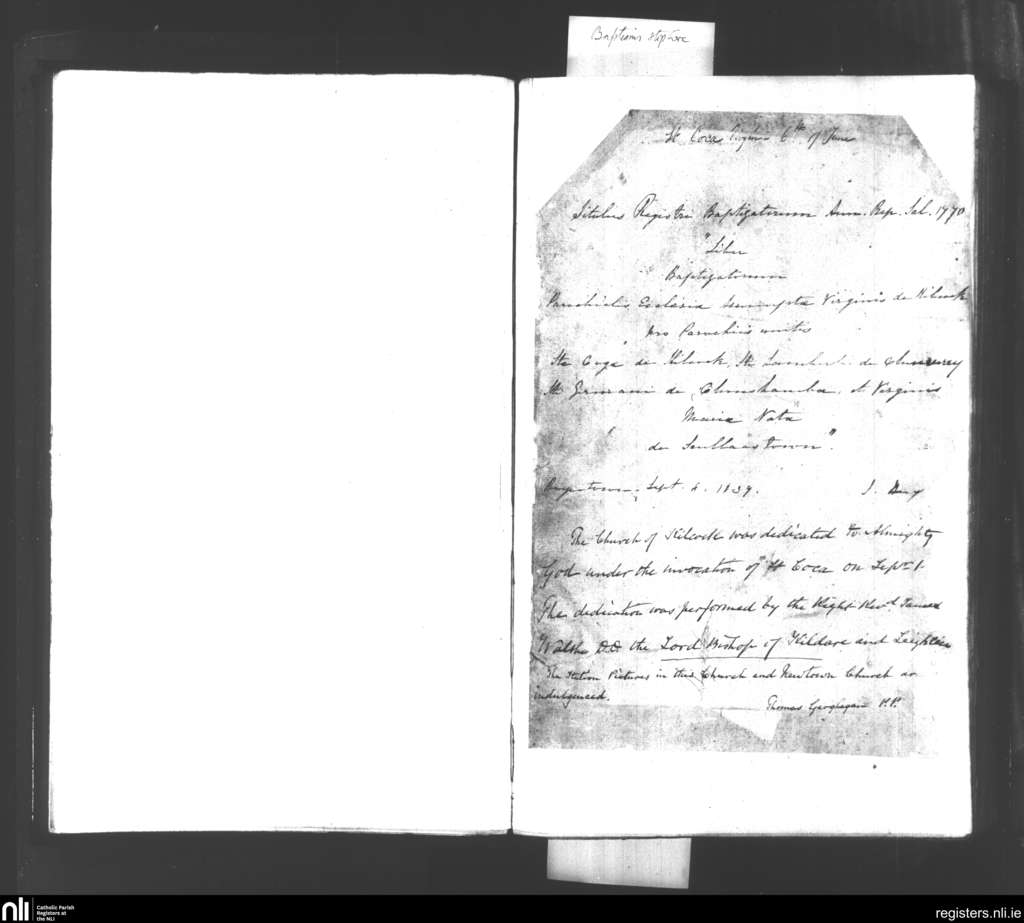 Baptisms
St Coca Virgin 6th of June
Titulus Registri Baptizatorum Ann. Rep. Sal. 1770
"Liber
Baptizatorum
Parochialis Ecclesia Assumpta Virginis de Kilcock
pro Parochiis unitis
Sta Coga de Kilcock, Sti de
Sti Germani de Clonshamba, et Virginis
Maria Nata
de Scullaastown".
Sept. 4. 1839. J.
The Church of Kilcock was dedicated to Almighty
God under the invocation of St Coca on Sepr 1.
The dedication was performed by the Right Revd James
Walshe D.D the Lord Bishop of Kildare and Leighlin
The Station Pictures in this Church and Newtown Church are
indulgenced.
Thomas Geoghegan P.P.
nli Catholic Parish
Registers at
the NLI
registers.nli.ie